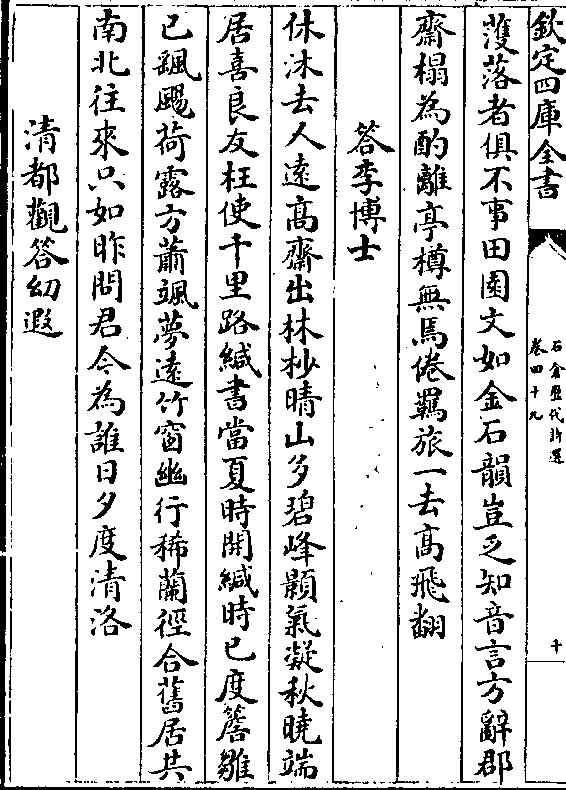 欽定四庫全書
石倉歷代詩選
卷四十九
十
濩落者俱不事田園文如金石韻豈乏知音言方辭郡
齋榻為酌離亭樽無馬倦羈旅一去高飛翻
答李博士
休沐去人遠高齋出林杪晴山多碧峰顥氣凝秋曉端
居喜良友枉使千里路緘書當夏時開緘時已度簷雛
已飄颺荷露方蕭颯夢遠竹窗幽行稀蘭徑合舊居共
南北往來只如昨問君今為誰日夕度清洛
清都觀答幼遐